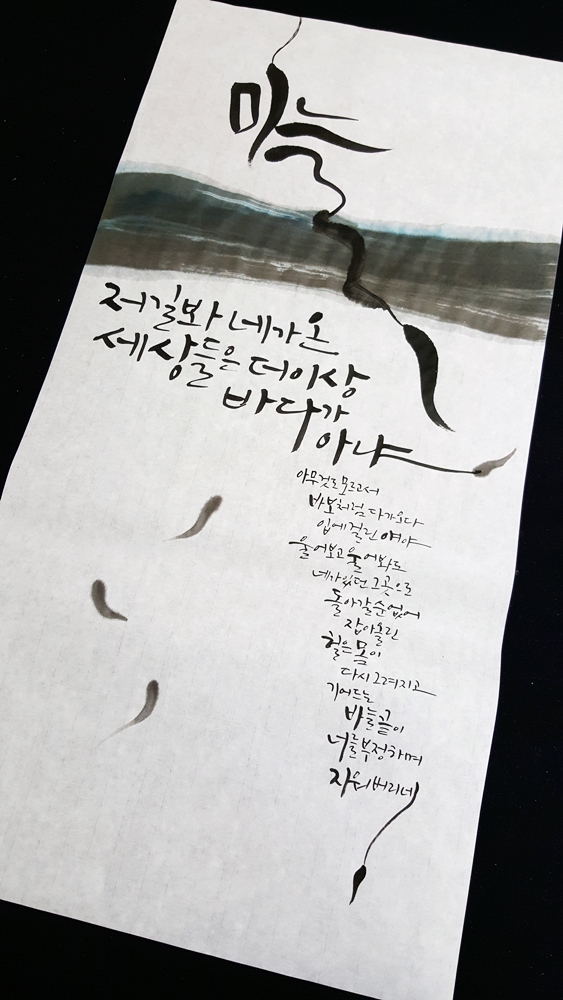 마늘
저길봐 네가온
세상들은 더이상
바다가
아냐
아무것도 모르고서
바보처럼 다가오다
입에 걸린 얘야
울어보고 울어봐도
네가 있던 그곳으로
돌아갈순 없어
잡아올린
힘은 몸이
다시 그려지고
기어드는
바늘끝이
너를 부정하며
지워버리네